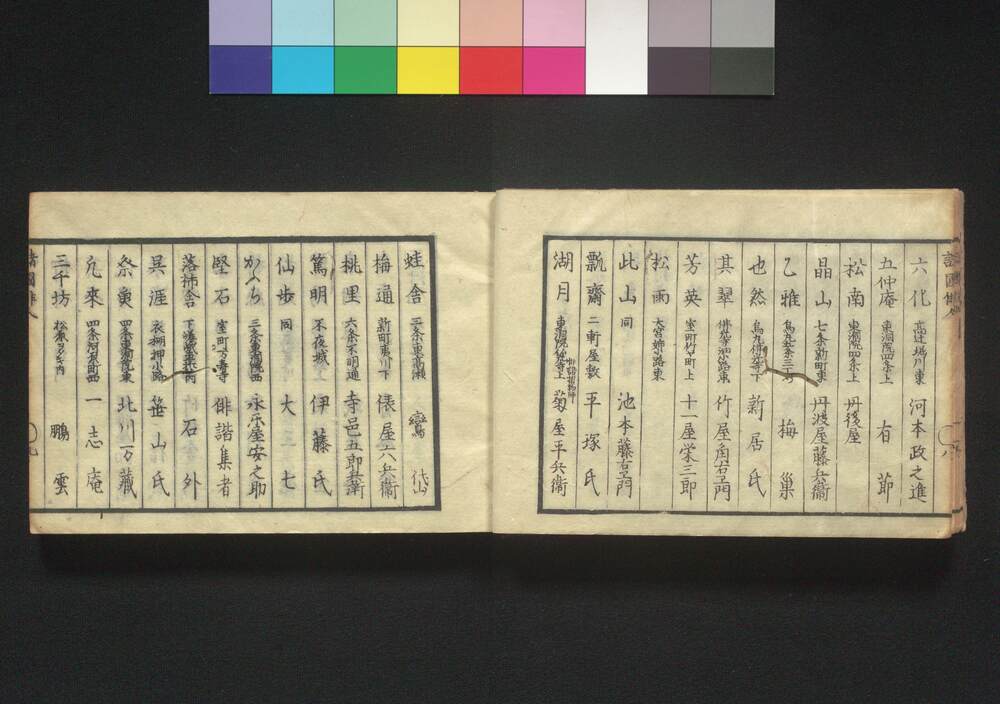 六化 高辻堀川東 河本政之進
五仲庵 東洞院四条上 有節
松南 東洞院四条上 丹後屋
晶山 七条新町東 丹波屋藤兵衛
乙雅 梅巣
也然 烏丸佛光寺下 新居氏
其翠 竹屋角右ヱ門
芳英 室町竹や町上 十一屋栄三郎
松雨 大宮姉小路東
此山 同 池本藤右ヱ門
瓢齋 二軒屋敷 平塚氏
湖月 菊屋平兵衞
蛙舎 三条東高瀬 岱
梅通 新町夷川下 俵屋六兵衞
桃里 六条不明通 寺邑五郎兵衛
篤明 不夜城 伊藤氏
仙歩 同 大三七
かくち 三条東洞院西 永不屋安之助
堅石 室町万寿寺 俳諧集者
落柿舎 石外
呉涯 衣棚押小路 笹山氏
祭寅 四条東洞院東 北川万藏
九來 四条河原町西 一志庵
三千坊 鵬雲